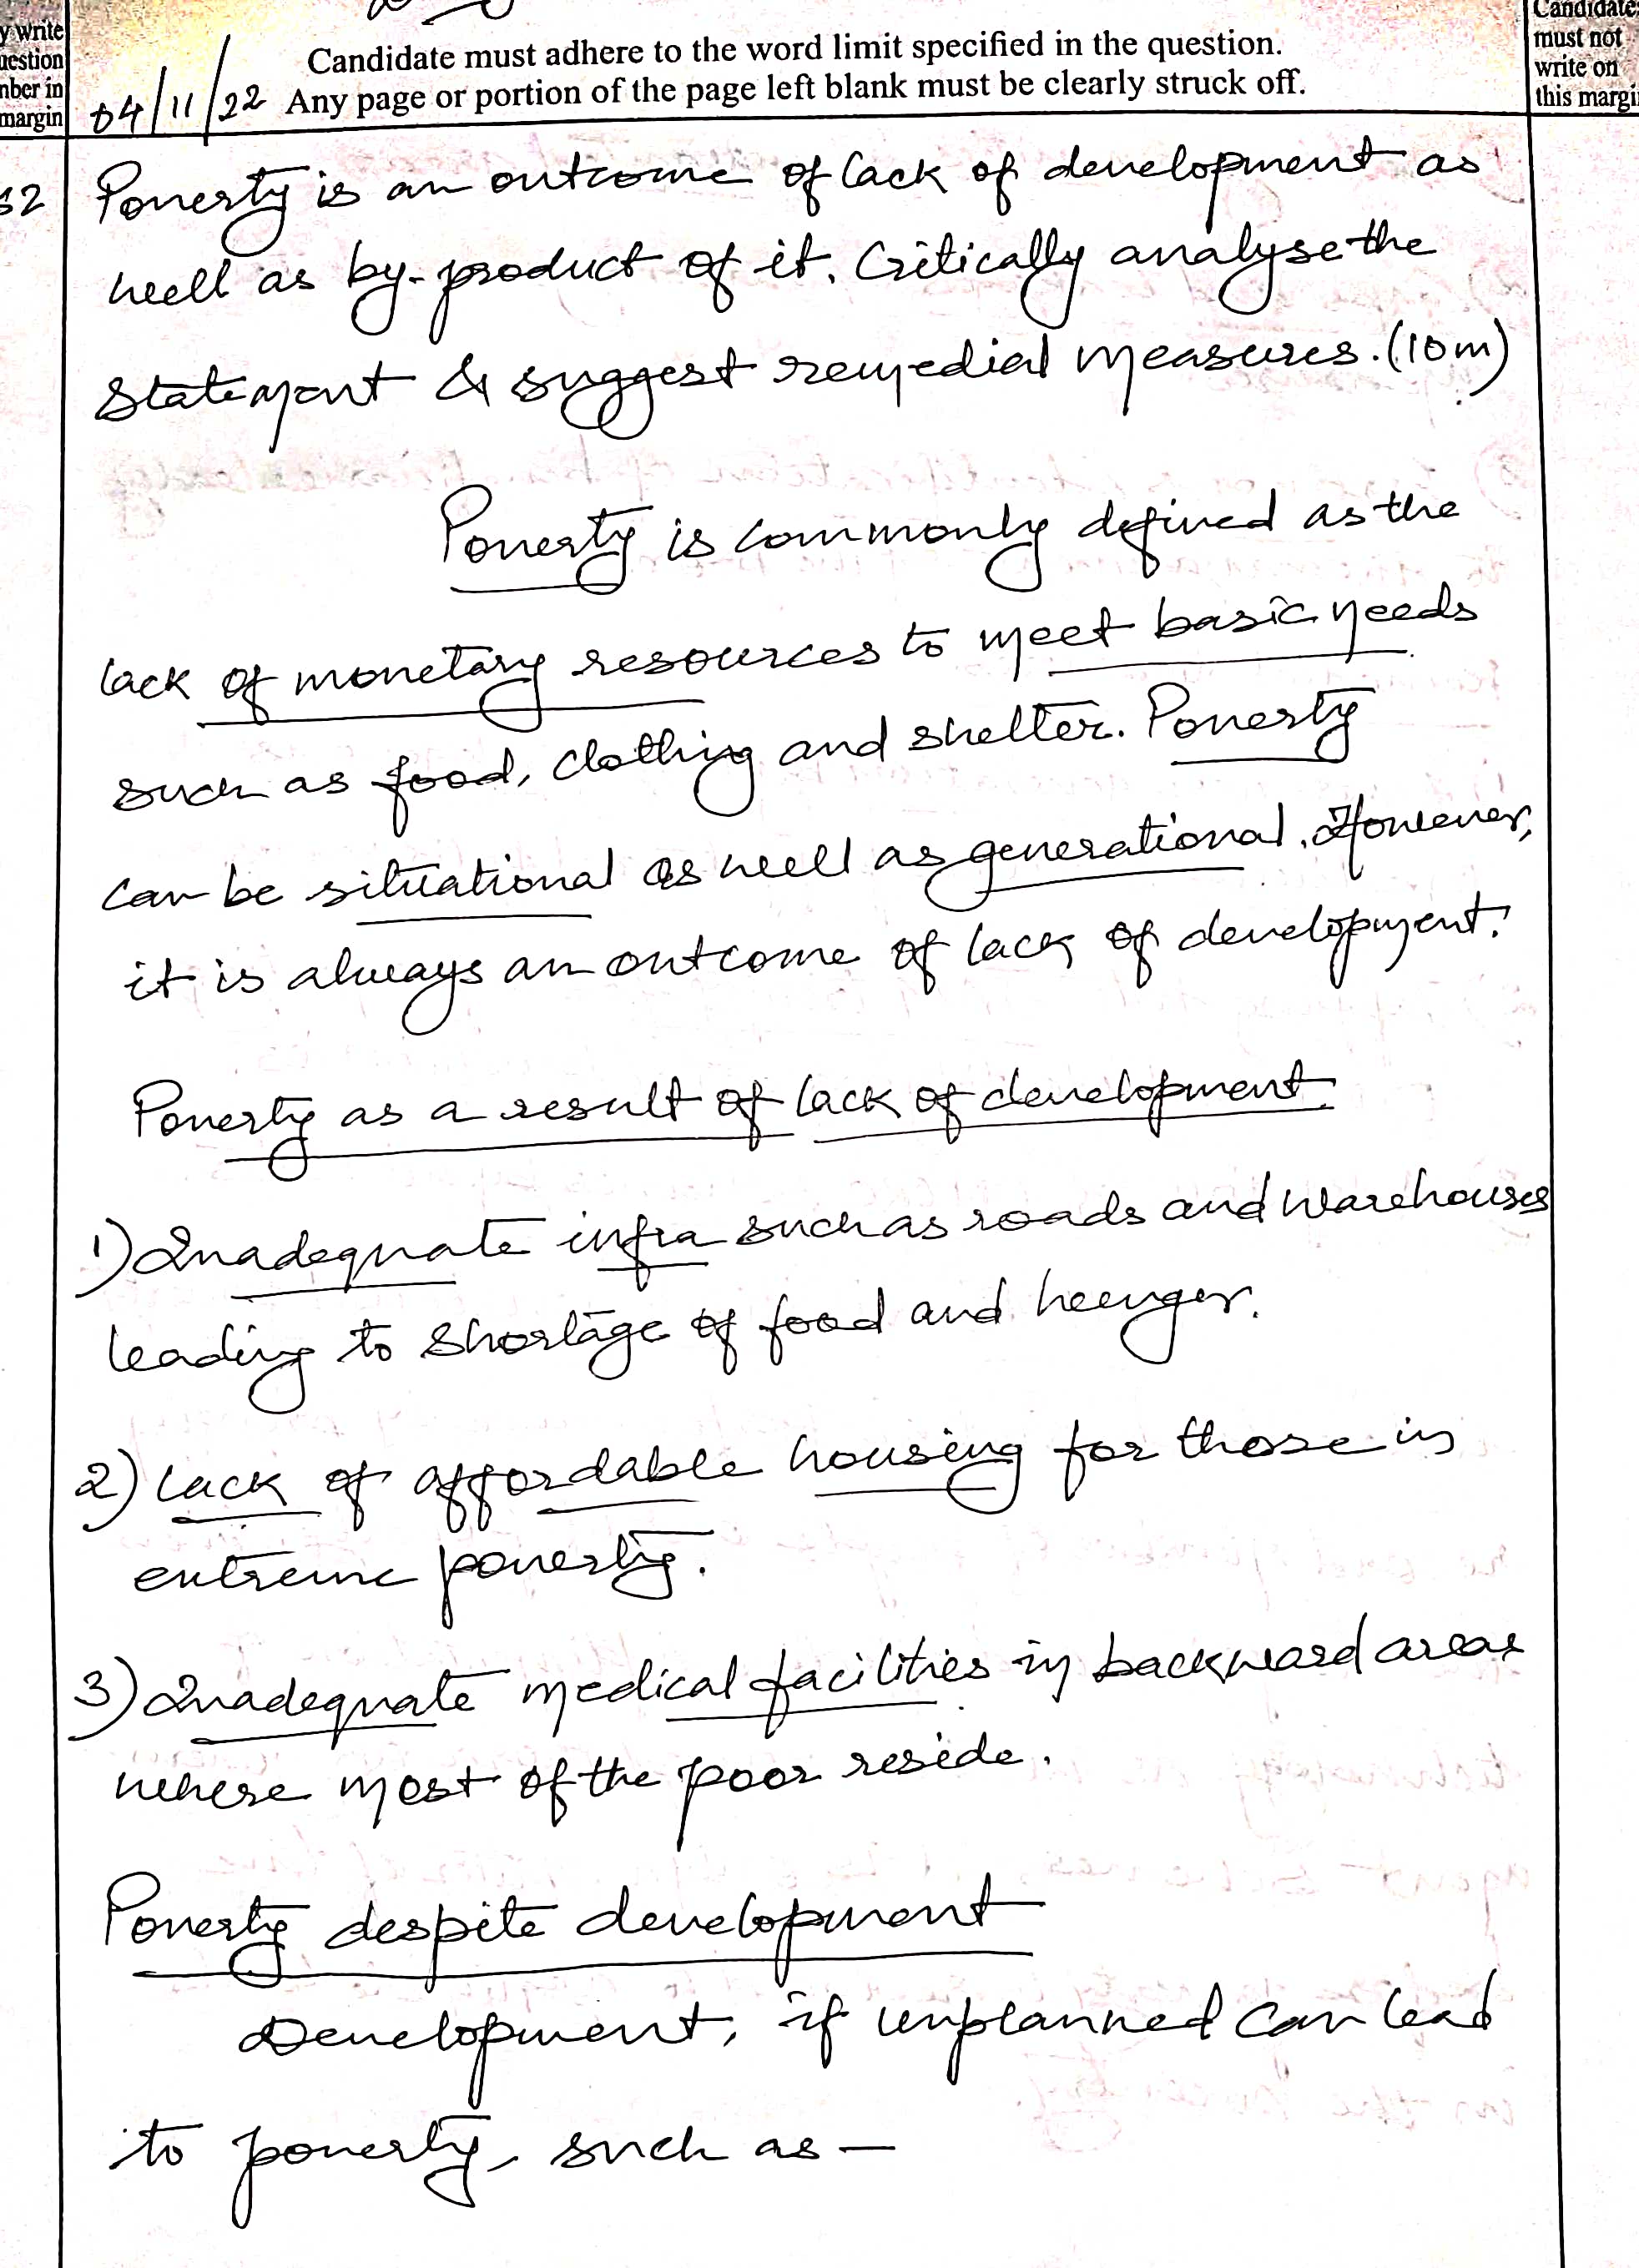 y write
uestion
nber in
margin
Candidate must adhere to the word limit specified in the question.
Any page or portion of the page left blank must be clearly struck off.
Candidates
must not
write on
this margi
04/11/22
Poverty is an outcome of lack of development as
well as by-product of it. Critically analyse the
statement & suggest remedial measures. (10m)
Poverty is commonly defined as the
lack of monetary resources to meet basic needs
such as food, clothing and shelter. Poverty
can be situational as well as generational. However,
it is always an outcome of lack of development.
Poverty as a result of lack of development
1) Inadequate infra such as roads and warehouses
leading to shortage of food and hunger.
2) Lack of affordable housing for those in
extreme poverty.
3) Inadequate medical facilities in backward areas
where most of the poor reside.
Poverty despite development
Development, if unplanned can lead
to poverty, such as —